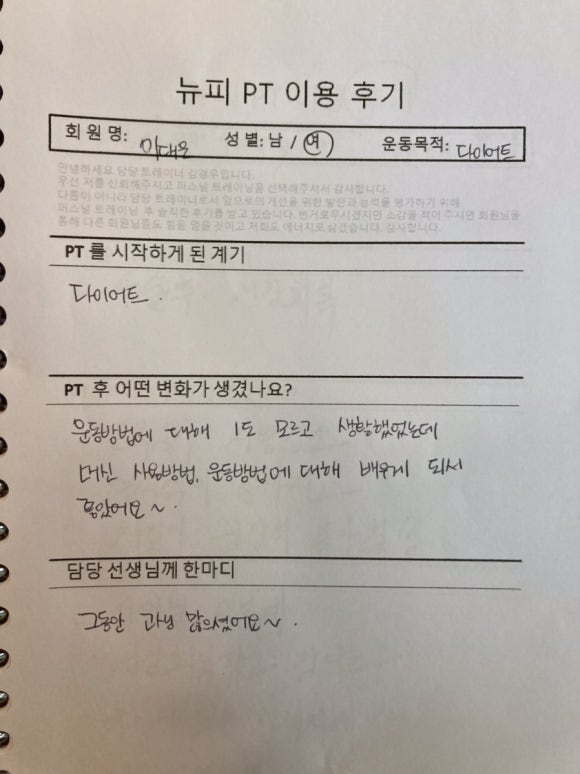 뉴피 PT 이용 후기
회원명: 성별: 남 / 여 운동목적: 다이어트
안녕하세요 담당 트레이너 김경우입니다.
우선 저를 신뢰해주시고 퍼스널 트레이닝을 선택해주셔서 감사합니다.
다름이 아니라 담당 트레이너로서 앞으로의 개선을 위한 발단과 능력을 평가하기 위해
퍼스널 트레이닝 후 솔직한 후기를 받고 있습니다. 번거로우시겠지만 소감을 적어 주시면 회원님을
통해 다른 회원님들도 힘을 얻을 것이고 저희도 에너지로 삼겠습니다. 감사합니다.
PT 를 시작하게 된 계기
다이어트.
PT 후 어떤 변화가 생겼나요?
운동방법에 대해 1도 모르고 생활했었는데
머신 사용방법, 운동방법에 대해 배우게 되서
좋았어요~.
담당 선생님께 한마디
그동안 고생 많으셨어요~.